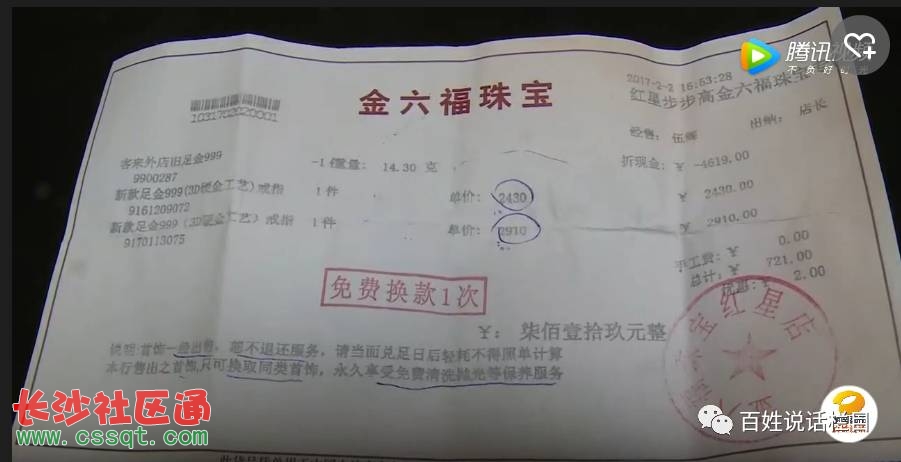 腾讯视频
不负好时光
金六福珠宝
2017-2-2 16:53:28
红星步步高金六福珠宝
1031702020001
经售: 伍辉 出纳: 店长
客来外店旧足金999 -1 重量: 14.30 克 折现金: ¥ -4619.00
9900287
新款足金999(3D硬金工艺)戒指 1件 单价: 2430 ¥ 2430.00
9161209072
新款足金999(3D硬金工艺)戒指 1件 单价: 2910 ¥ 2910.00
9170113075
手工费: ¥ 0.00
总计: ¥ 721.00
优惠: ¥ 2.00
免费换款1次
¥: 柒佰壹拾玖元整
说明:首饰一经出售, 恕不退还服务, 请当面兑足日后轻耗不得照单计算
本行售出之首饰,只可换取同类首饰, 永久享受免费清洗抛光等保养服务
宝红星店
长沙社区通
www.cssqt.com
百姓说话校园